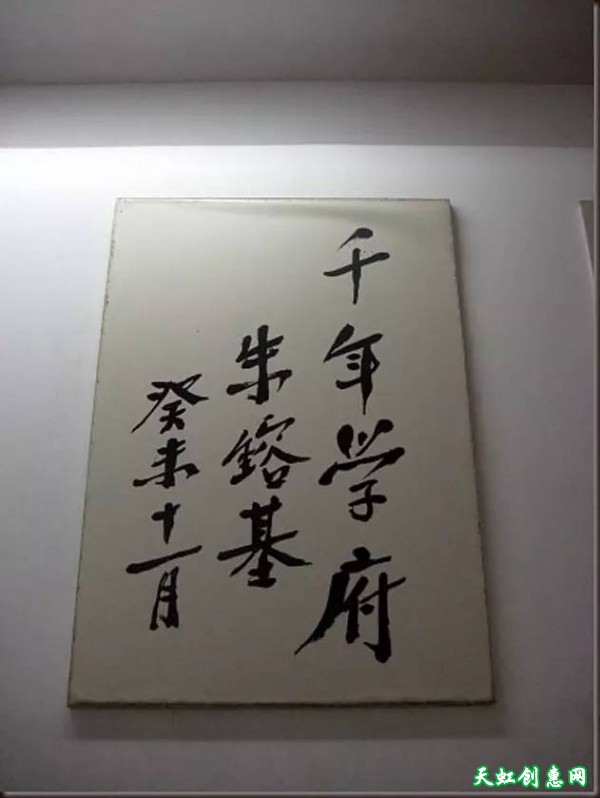 千年学府
朱镕基
癸未十一月
天虹创惠网